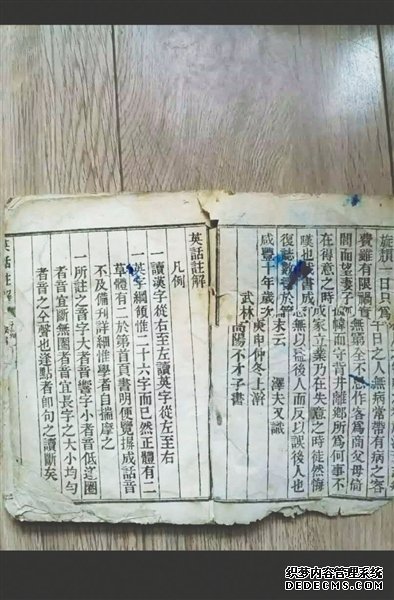 旅頓一日只爲千日之人無病常帶有病之客
費雖有限禍實無 余不 作客爲商父母倚
閭而望妻子 幃而守背井離鄉所爲何事不
在得意之時成家立業乃在失意之時徒然悔
嘆也哉書成 無以貽後人而反以誤後人也
復誌數 於篇末云 澤夫又識
咸豐十年歲次庚申仲冬上澣
武林高陽不才子書
英話註解
凡例
一讀漢字從右至左讀英字從左至右
一英字綱領惟二十六字而已然正體有二
草體有二於第首頁書明便覽撰成話音
不及備刊詳細惟學者自揣摩之
一所註之音字大者音響字小者音低逗圈
者音宜斷無圈者音宜長字之大小均勻
者音之仝聲也逢點者卽句之讀斷矣
英話註解
织梦内容管理系统
DEDECMS.COM